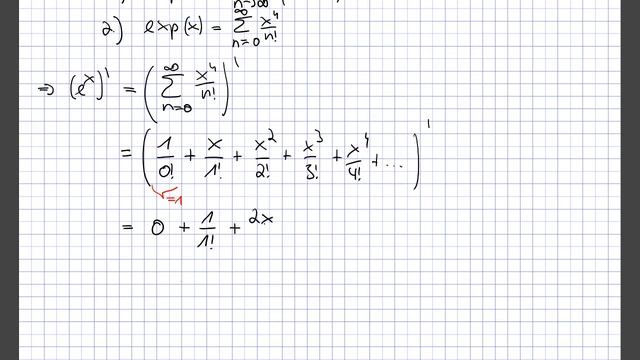 2) exp(x) = ∞ Σ n=0 x^n/n!
⇒ (e^x)' = ( ∞ Σ n=0 x^n/n! )'
= ( 1/0! + x/1! + x^2/2! + x^3/3! + x^4/4! + ... )'
=1
= 0 + 1/1! + 2x